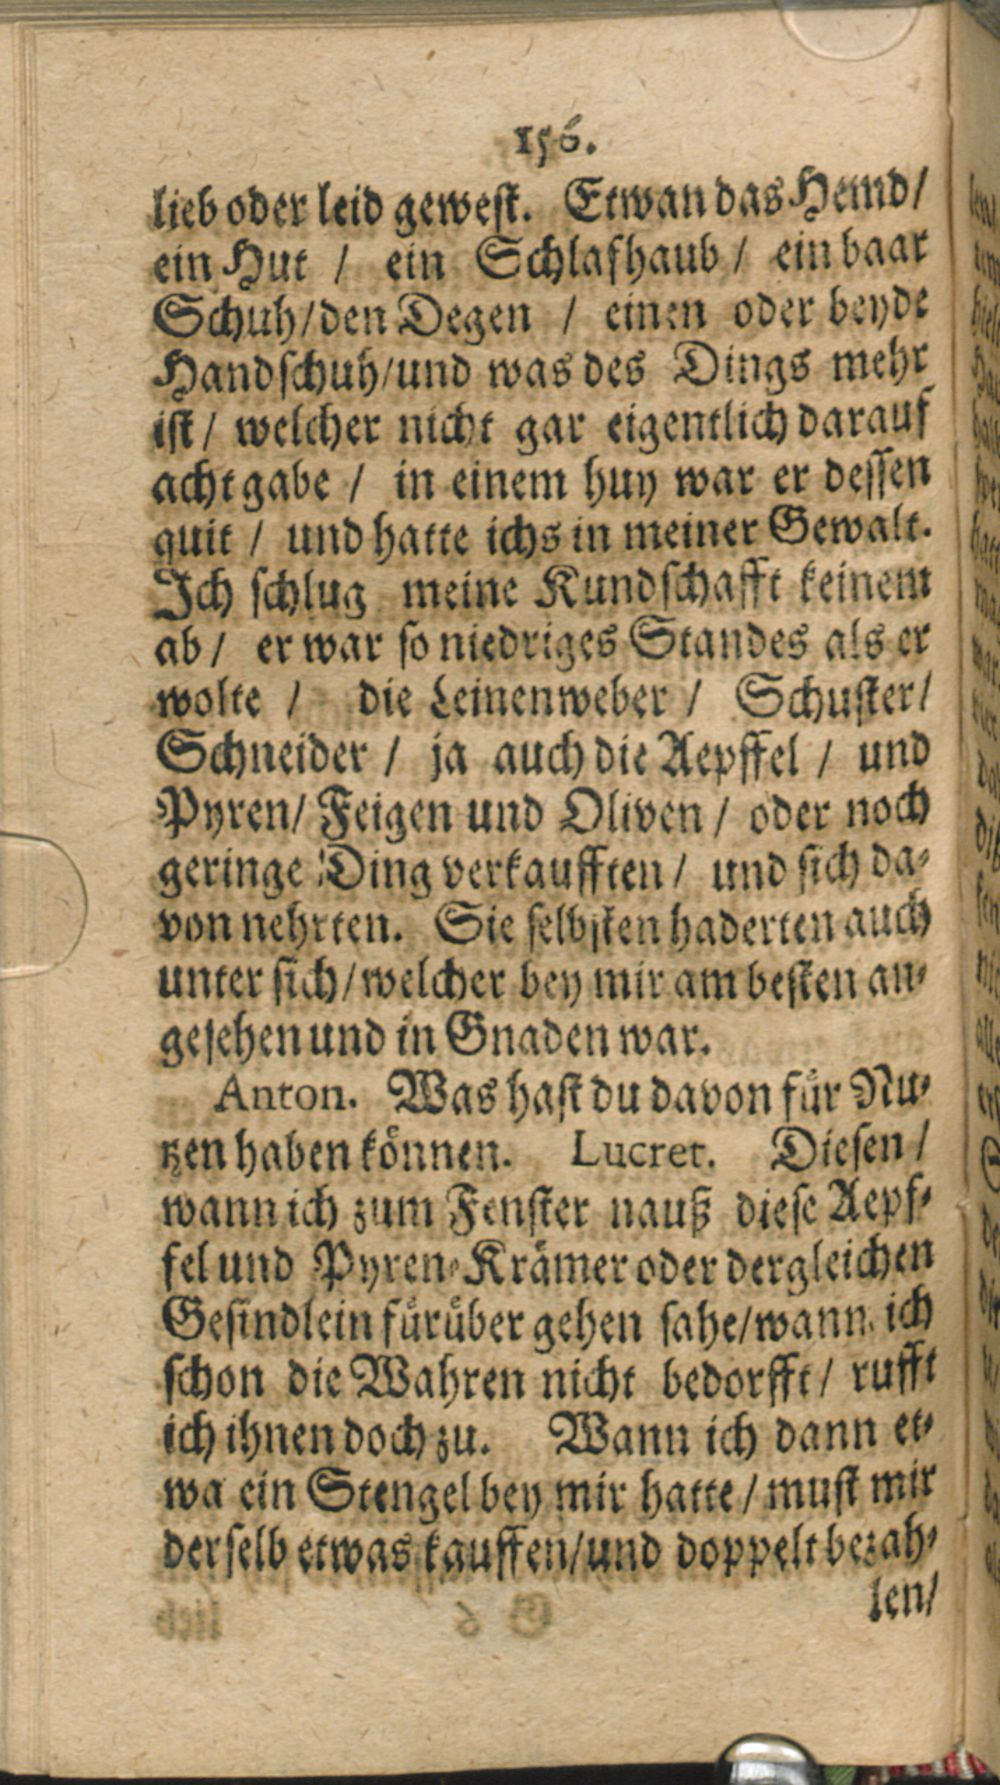 156.
lieb oder leid gewest. Etwan das Hemd/
ein Hut / ein Schlafhaub / ein baar
Schuh/den Degen / einen oder beyde
Handschuh/und was des Dings mehr
ist / welcher nicht gar eigentlich darauf
acht gabe / in einem huy war er dessen
quit / und hatte ichs in meiner Gewalt.
Ich schlug meine Kundschafft keinem
ab / er war so niedriges Standes als er
wolte / die Leinenweber / Schuster/
Schneider / ja auch die Aepffel / und
Pyren/ Feigen und Oliven / oder noch
geringe Ding verkaufften / und sich da-
von nehrten. Sie selbsten haderten auch
unter sich/welcher bey mir am besten an-
gesehen und in Gnaden war.
Anton. Was hast du davon für Nu-
tzen haben können. Lucret. Diesen /
wann ich zum Fenster nauß diese Aepf-
fel und Pyren-Krämer oder dergleichen
Gesindlein fürüber gehen sahe/wann ich
schon die Wahren nicht bedorfft / rufft
ich ihnen doch zu. Wann ich dann et-
wa ein Stengel bey mir hatte / must mir
derselb etwas kauffen/und doppelt bezah-
len/